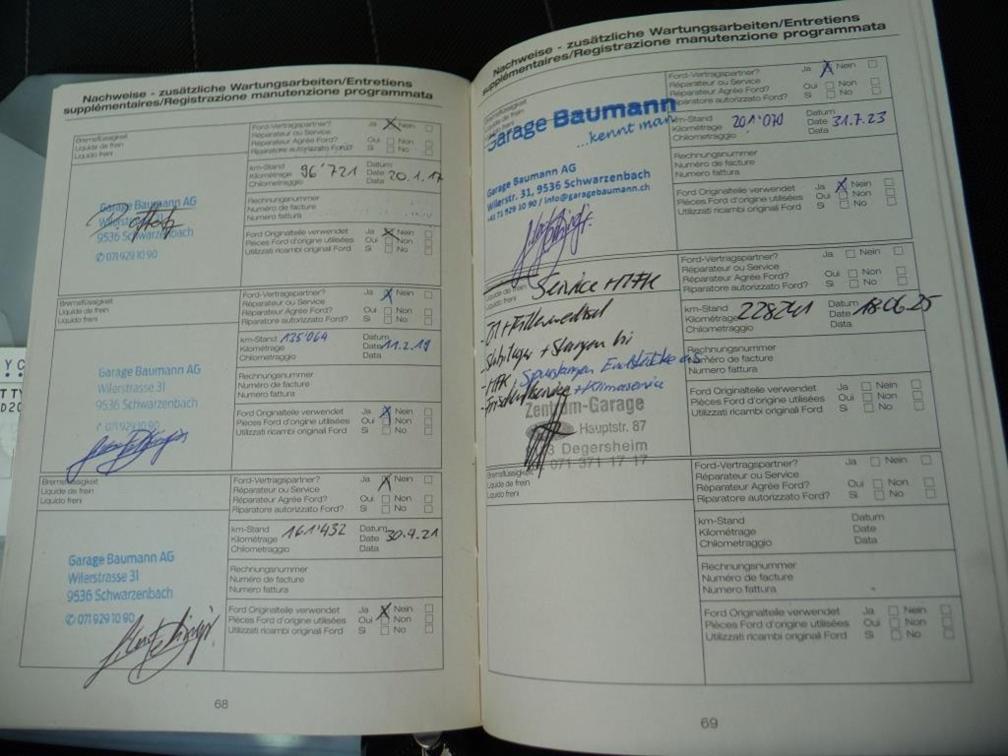 Nachweise - zusätzliche Wartungsarbeiten/Entretiens
supplémentaires/Registrazione manutenzione programmata
Bremsflüssigkeit
Liquide de frein
Liquido freni
Garage Baumann AG
Wilerstrasse 31
9536 Schwarzenbach
✆ 071 929 10 90
Ford-Vertragspartner? Ja Nein
Réparateur ou Service
Réparateur Agrée Ford? Oui Non
Riparatore autorizzato Ford? Si No
km-Stand Datum
Kilométrage 96'721 Date 20.1.17
Chilometraggio Data
Rechnungsnummer
Numéro de facture
Numero fattura
Ford Originalteile verwendet Ja Nein
Pièces Ford d'origine utilisées Oui Non
Utilizzati ricambi original Ford Si No
Bremsflüssigkeit
Liquide de frein
Liquido freni
Garage Baumann AG
Wilerstrasse 31
9536 Schwarzenbach
✆ 071 929 10 90
Ford-Vertragspartner? Ja Nein
Réparateur ou Service
Réparateur Agrée Ford? Oui Non
Riparatore autorizzato Ford? Si No
km-Stand 125'064 Datum
Kilométrage Date 11.2.19
Chilometraggio Data
Rechnungsnummer
Numéro de facture
Numero fattura
Ford Originalteile verwendet Ja Nein
Pièces Ford d'origine utilisées Oui Non
Utilizzati ricambi original Ford Si No
Bremsflüssigkeit
Liquide de frein
Liquido freni
Garage Baumann AG
Wilerstrasse 31
9536 Schwarzenbach
✆ 071 929 10 90
Ford-Vertragspartner? Ja Nein
Réparateur ou Service
Réparateur Agrée Ford? Oui Non
Riparatore autorizzato Ford? Si No
km-Stand Datum
Kilométrage 161'432 Date 30.4.21
Chilometraggio Data
Rechnungsnummer
Numéro de facture
Numero fattura
Ford Originalteile verwendet Ja Nein
Pièces Ford d'origine utilisées Oui Non
Utilizzati ricambi original Ford Si No
68
Nachweise - zusätzliche Wartungsarbeiten/Entretiens
supplémentaires/Registrazione manutenzione programmata
Bremsflüssigkeit
Liquide de frein
Garage Baumann
...kennt man
Garage Baumann AG
Wilerstr. 31, 9536 Schwarzenbach
+41 71 929 10 90 / info@garagebaumann.ch
Ford-Vertragspartner? Ja Nein
Réparateur ou Service
Réparateur Agrée Ford? Oui Non
Riparatore autorizzato Ford? Si No
km-Stand Datum
Kilométrage 201'070 Date 31.7.23
Chilometraggio Data
Rechnungsnummer
Numéro de facture
Numero fattura
Ford Originalteile verwendet Ja Nein
Pièces Ford d'origine utilisées Oui Non
Utilizzati ricambi original Ford Si No
Liquide de frein
Liquido freni
Service + MFK
+ Stangen
- MFK Spurstangen
+ Klimaservice
Zentrum-Garage
Hauptstr. 87
Degersheim
071 371 17 17
Ford-Vertragspartner? Ja Nein
Réparateur ou Service
Réparateur Agrée Ford? Oui Non
Riparatore autorizzato Ford? Si No
km-Stand Datum
Kilométrage 228241 Date 18.06.25
Chilometraggio Data
Rechnungsnummer
Numéro de facture
Numero fattura
Ford Originalteile verwendet Ja Nein
Pièces Ford d'origine utilisées Oui Non
Utilizzati ricambi original Ford Si No
Bremsflüssigkeit
Liquide de frein
Liquido freni
Ford-Vertragspartner? Ja Nein
Réparateur ou Service
Réparateur Agrée Ford? Oui Non
Riparatore autorizzato Ford? Si No
km-Stand Datum
Kilométrage Date
Chilometraggio Data
Rechnungsnummer
Numéro de facture
Numero fattura
Ford Originalteile verwendet Ja Nein
Pièces Ford d'origine utilisées Oui Non
Utilizzati ricambi original Ford Si No
69